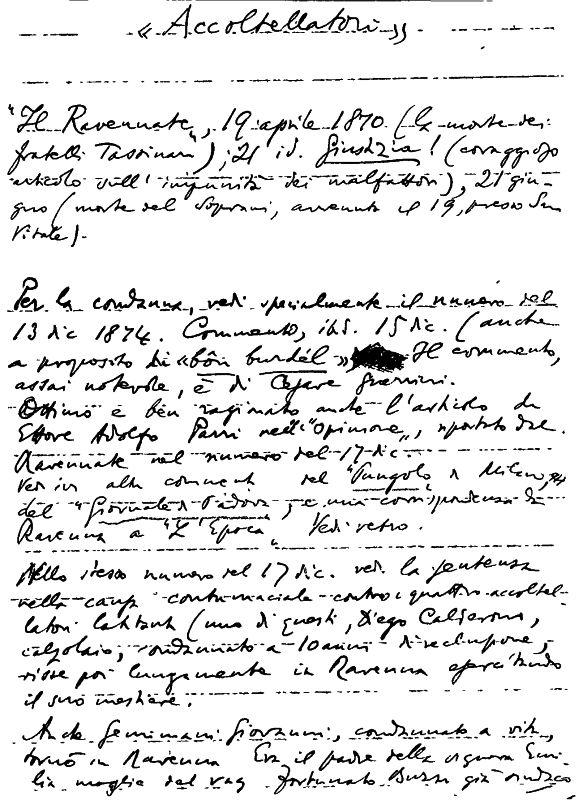 « Accoltellatori »
"Il Ravennate", 19 aprile 1870 (la morte dei
fratelli Tassinari); 21 id. Giustizia! (coraggioso
articolo sull'impunità dei malfattori), 21 giu-
gno (morte del Soprani, avvenuta il 19, presso San
Vitale).
Per la condanna, vedi specialmente il numero del
13 dic 1874. Commento, ibid. 15 dic. (anche
a proposito di «bon burdél» Il commento,
assai notevole, è di Cesare
Ottimo e ben ragionato anche l'articolo di
Ettore Adolfo Parri nell'"Opinione", riportato dal
Ravennate nel numero del 17 dic.
Vedi ivi altri commenti del "Pungolo" di Milano,
del "Giornale di Padova", e una corrispondenza da
Ravenna a "L'Epoca" Vedi retro.
Nello stesso numero del 17 dic. vedi la sentenza
nella causa contumaciale contro i quattro accoltel-
latori latitanti (uno di questi, Diego Calderoni,
calzolaio, condannato a 10 anni di reclusione,
visse poi lungamente in Ravenna esercitando
il suo mestiere.
Anche Geminiani Giovanni, condannato a vita,
tornò in Ravenna Era il padre della signora Emi-
lia moglie del rag Fortunato Buzzi già sindaco